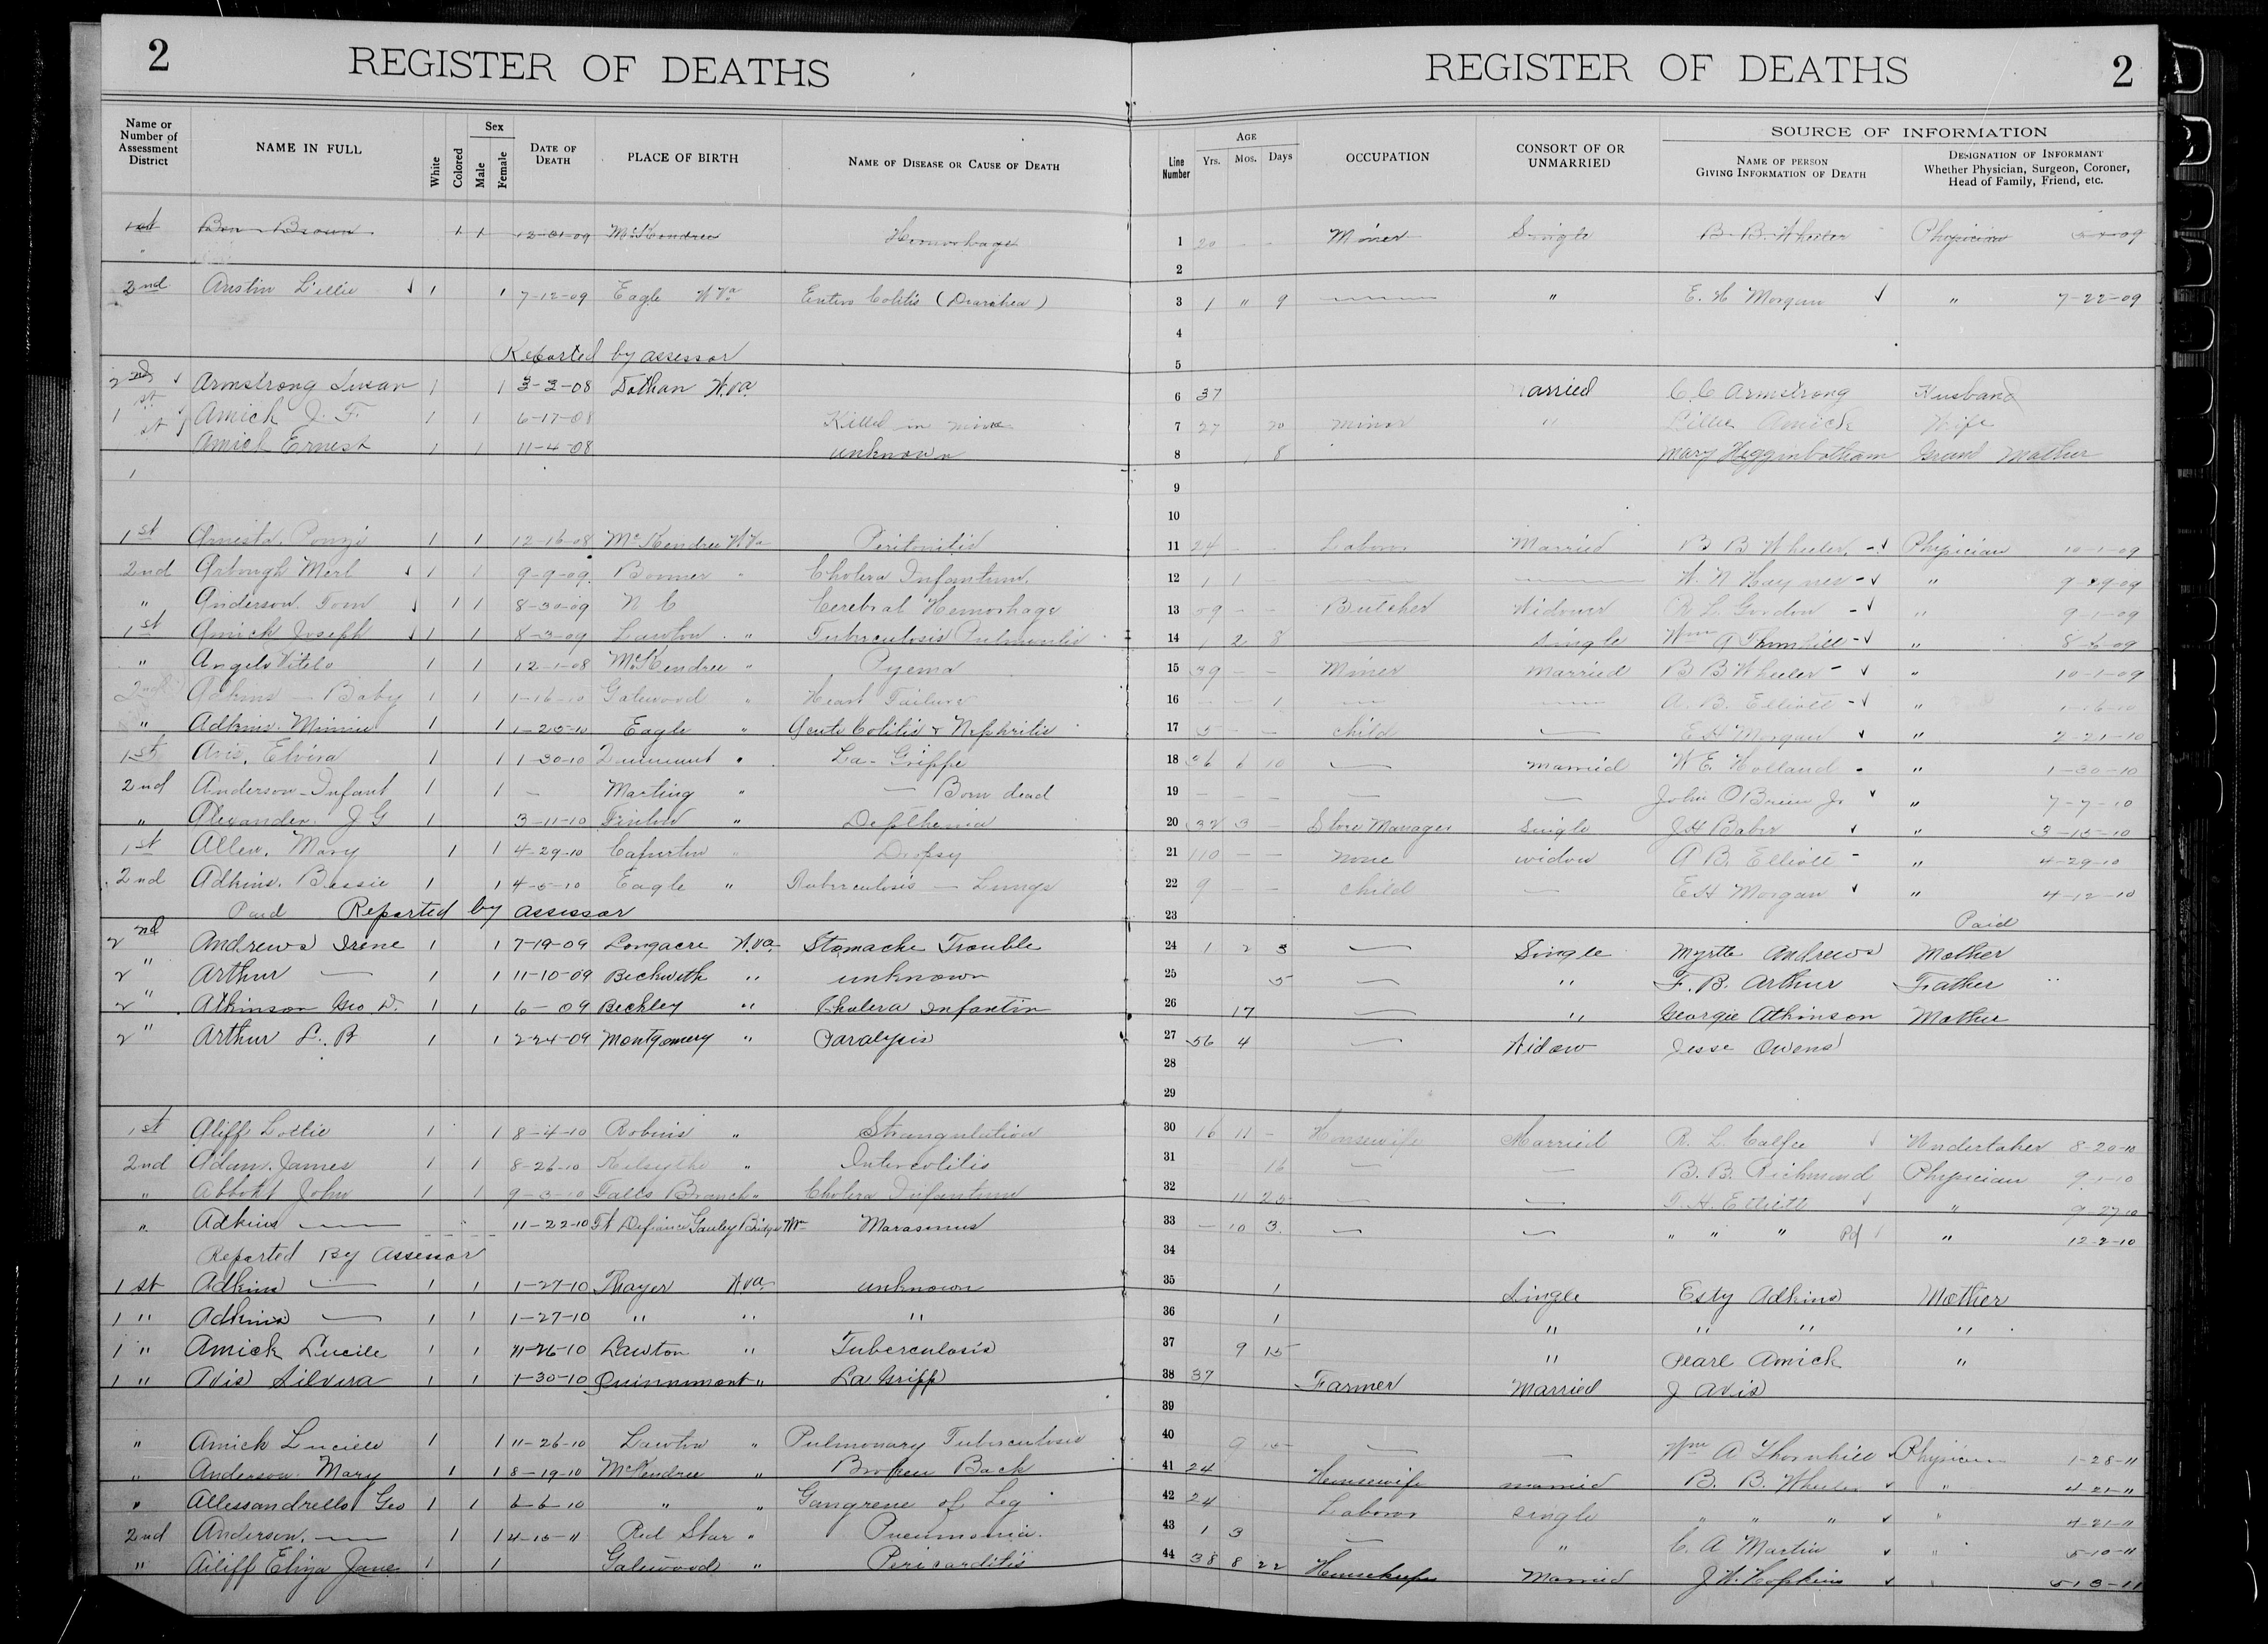 2 REGISTER OF DEATHS
REGISTER OF DEATHS 2
Name or Number of Assessment District NAME IN FULL White Colored Sex Male Female DATE OF DEATH PLACE OF BIRTH NAME OF DISEASE OR CAUSE OF DEATH Line Number AGE Yrs. Mos. Days OCCUPATION CONSORT OF OR UNMARRIED SOURCE OF INFORMATION NAME OF PERSON GIVING INFORMATION OF DEATH DESIGNATION OF INFORMANT Whether Physician, Surgeon, Coroner, Head of Family, Friend, etc.
1st Ben Brown 1 1 McKendree Hemorhage 1 20 - - Miner Single B. B. Wheeler Physician
" 2
2nd Austin Lillie 1 1 7-12-09 Eagle W Va Entero Colitis (Diarrhea) 3 1 " 9 " E. H Morgan " 7-22-09
4
Reported by assessor 5
2nd Armstrong Susan 1 1 3-3-08 Dothan W.Va. 6 37 Married C. C Armstrong Husband
1st Amick J. F. 1 1 6-17-08 Killed in mine 7 27 20 minor " Lillie Amick Wife
st Amick Ernest 1 1 11-4-08 unknown 8 8 Mary Higginbotham Grand Mother
1 9
10
1st Ponzi 1 1 12-16-08 McKendree W Va Peritonitis 11 24 - - Labor Married B B Wheeler Physician 10-1-09
2nd Arbough Merl 1 1 9-9-09 Boomer " Cholera Infantum. 12 1 1 W. N Haynes " 9-29-09
" Anderson. Tom 1 1 8-30-09 N C Cerebral Hemorhage 13 59 - - Butcher Widower L. Gordon " 9-1-09
1st Amick Joseph 1 1 8-3-09 Lawton " Tuberculosis 14 1 2 8 single Wm A Thornhill " 8-6-09
" Angelo Vitelo 1 1 12-1-08 McKendree " Pyema 15 39 - - Miner married B B Wheeler " 10-1-09
2nd Adkins - Baby 1 1 1-16-10 Gatewood " Heart Failure 16 - - 1 A. B. Elliott " 1-16-10
" Adkins. Minnie 1 1 1-25-10 Eagle " Acute Colitis & Nephritis 17 5 - - child E H Morgan " 2-21-10
1st Avis, Elvira 1 1 1-30-10 " La-Grippe 18 36 6 10 married W E. Holland " 1-30-10
2nd Anderson-Infant 1 1 - Marting " - Born dead 19 - - - John OBrien Jr. " 7-7-10
" Alexander. J G 1 3-11-10 Finlow " Deptheria 20 32 3 - Store Manager Single J H Baber " 3-15-10
1st Allen. Mary 1 1 4-29-10 Caperton " Dropsy 21 110 - - none widow A B. Elliott " 4-29-10
2nd Adkins. Bessie 1 1 4-5-10 Eagle " Tuberculosis - Lungs 22 9 - child E H Morgan " 4-12-10
Paid Reported by assessor 23 Paid
2nd Andrews Irene 1 1 7-19-09 Longacre W.Va. Stomache Trouble 24 1 2 3 Single Myrtle Andrews Mother
2" Arthur — 1 1 11-10-09 Beckwith " unknown 25 5 " F. B. Arthur Father
2" Atkinson Geo D. 1 1 6- 09 Beckley " Cholera Infantin 26 17 " Georgie Atkinson Mother
2" Arthur L. B 1 1 2-24-09 Montgomery " Paralysis 27 56 4 Widow Jesse Owens
28
29
1st Aliff Lottie 1 1 8-4-10 Robins " Strangulation 30 16 11 - Housewife Married R. L. Calfee Undertaker 8-20-10
2nd Adam. James 1 1 8-26-10 " Intercolitis 31 16 B. B. Richmond Physician 9-1-10
" Abbott John 1 1 9-3-10 Falls Branch " Cholera Infantum 32 11 25 Elliott " 9-27-10
" Adkins — 11-22-10 Ft Defiance Gauley Bridge Marasmus 33 - 10 3. " " " Pd " 12-2-10
Reported By Assessor 34
1st Adkins — 1 1 1-27-10 Thayer W.Va. unknown 35 1 Single Esty Adkins Mother
1 " Adkins — 1 1 1-27-10 " " " 36 1 " " " "
1 " Amick Lucile 1 1 11-26-10 Lawton " Tuberculosis 37 9 15 " Pearl Amick "
1 " Avis 1 1 1-30-10 Quinnimont " La Gripp 38 37 Farmer Married J Avis
39
" Amick Lucille 1 1 11-26-10 Lawton " Pulmonary Tuberculosis 40 9 15 Wm A Thornhill Physician 1-28-11
" Anderson. Mary 1 1 8-19-10 McKendree " Broken Back 41 24 Housewife married B. B. Wheeler " 4-21-11
" Allessandrello Geo 1 1 6-6-10 " " Gangrene of Leg 42 24 Labor single " " " " 4-21-11
2nd Anderson. — 1 1 4-15-11 Red Star " Pneumonia. 43 1 3 " C. A Martin " 5-10-11
" Ailiff Eliza Jane 1 1 Gatewood " Pericarditis 44 38 8 22 Housekeeper Married J W. Hopkins " 5-3-11